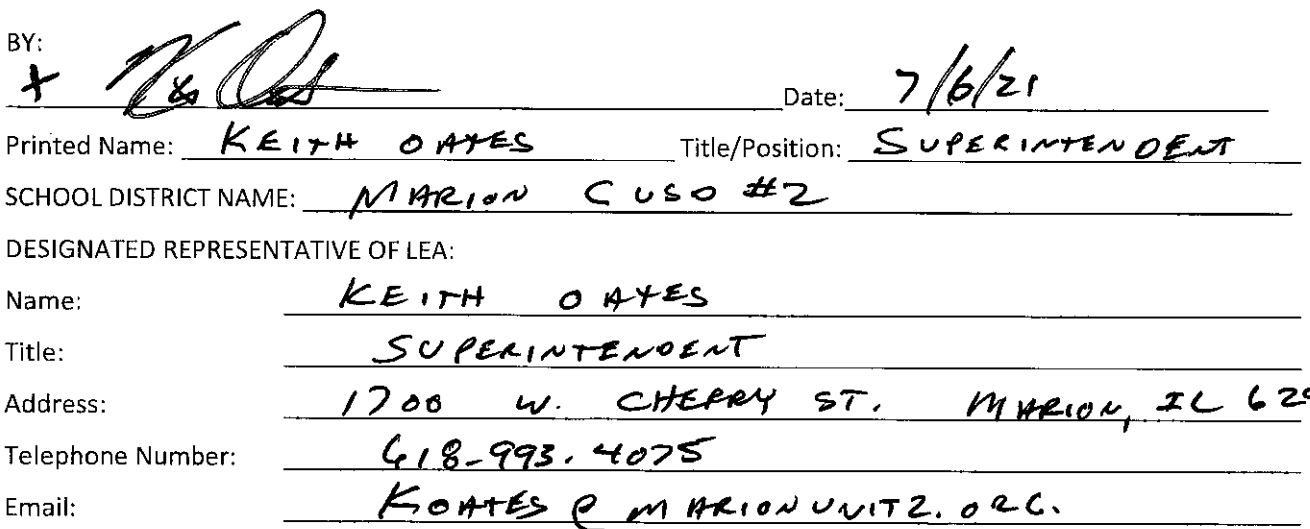 BY:
+ Date: 7/6/21
Printed Name: KEITH OATES Title/Position: SUPERINTENDENT
SCHOOL DISTRICT NAME: MARION CUSD #2
DESIGNATED REPRESENTATIVE OF LEA:
Name: KEITH OATES
Title: SUPERINTENDENT
Address: 1700 W. CHERRY ST. MARION, IL 629
Telephone Number: 618-993.4075
Email: KOATES@MARIONUNIT2.ORG.